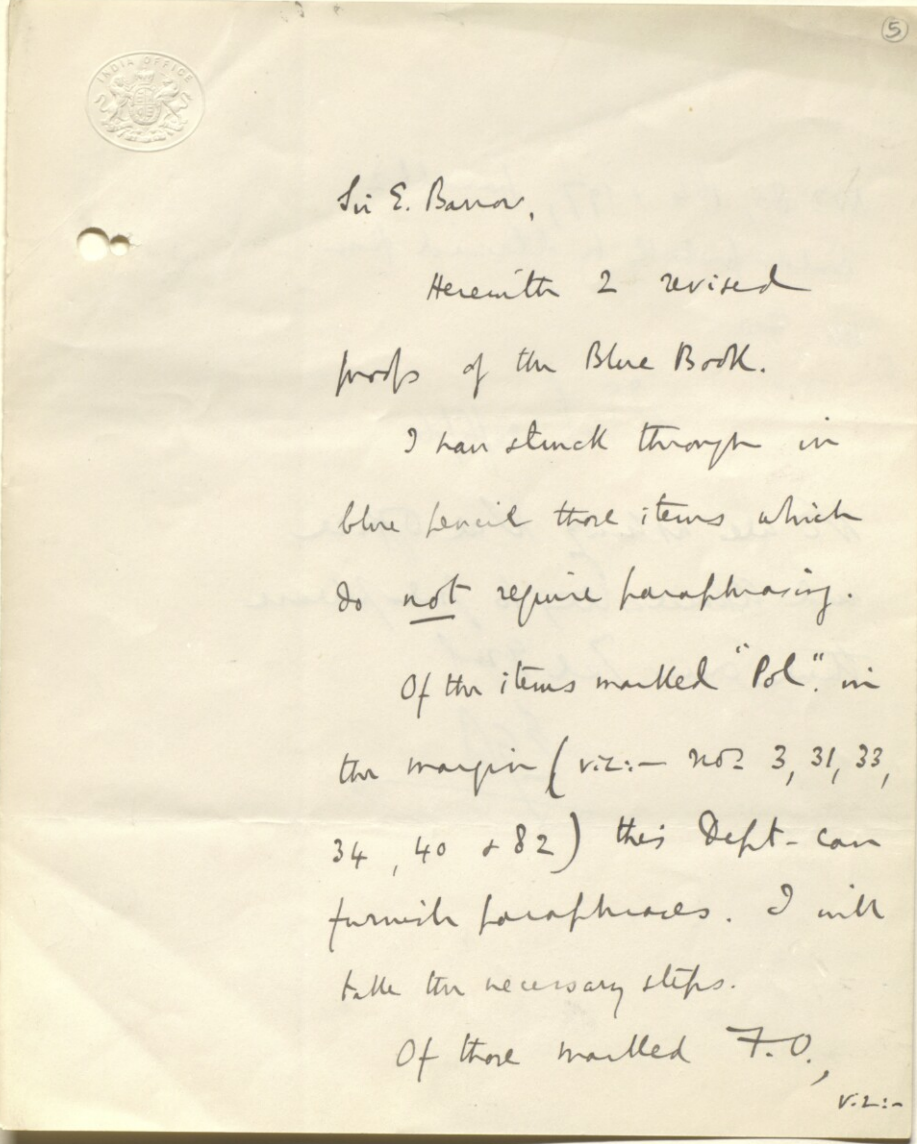 5
INDIA OFFICE
Sir E. Barrow,
Herewith 2 revised
proofs of the Blue Book.
I have struck through in
blue pencil those items which
do not require paraphrasing.
Of the items marked "Pol". in
the margin (viz:— Nos 3, 31, 33,
34, 40 & 82) this Dept. can
furnish paraphrases. I will
take the necessary steps.
Of those marked F.O.,
viz:-